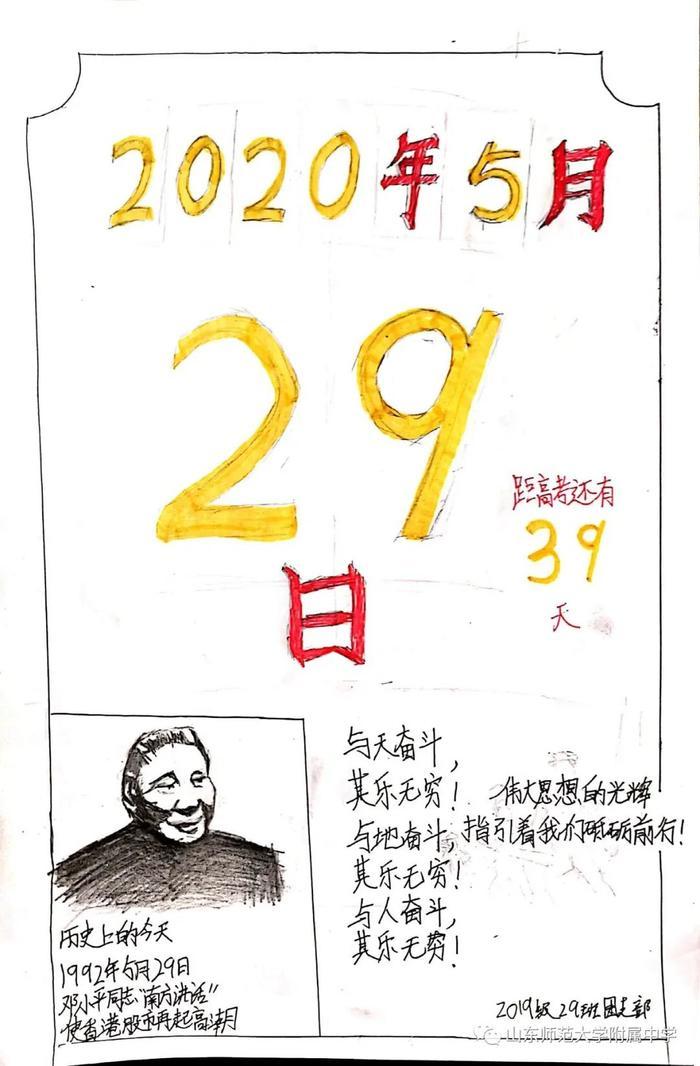 2020年5月
29
日
距高考还有
39
天
历史上的今天
1992年5月29日
邓小平同志"南方讲话"
使香港股市再起高潮
与天奋斗,
其乐无穷!
与地奋斗,
其乐无穷!
与人奋斗,
其乐无穷!
伟大思想的光辉
指引着我们砥砺前行!
2019级29班团支部
山东师范大学附属中学